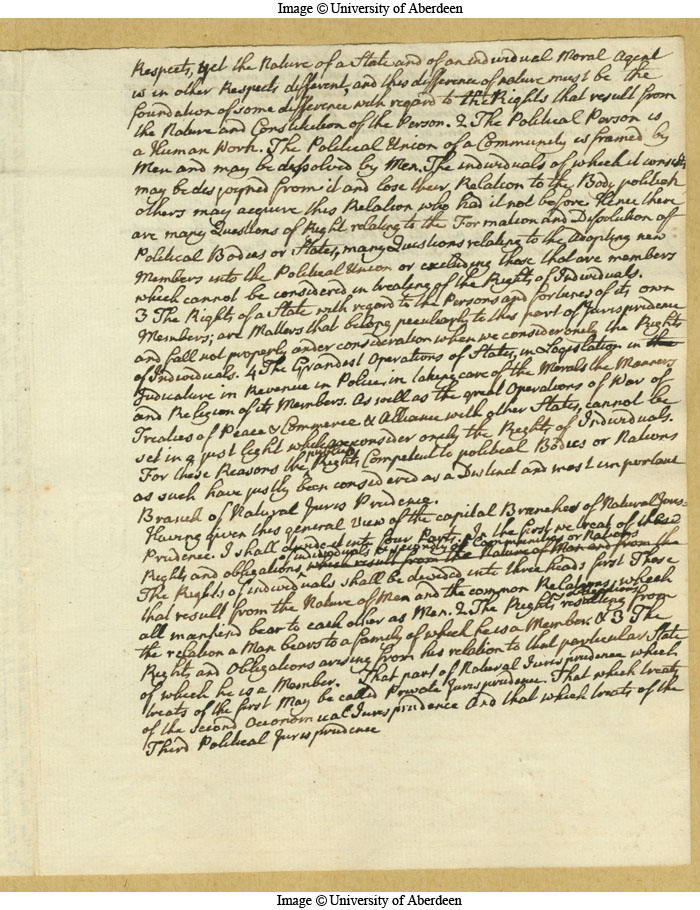 Image © University of Aberdeen
Respects, yet the Nature of a State and of an individual Moral Agent
is in other Respects different, and this difference of nature must be the
foundation of some difference with regard to the Rights that result from
the Nature and Constitution of the Person. 2 The Political Person is
a Human Work. The Political Union of a Community is framed by
Men and may be dissolved by Men. The individuals of which it consists
may be disjoyned from it and lose their Relation to the Body politick
others may acquire this Relation who had it not before Hence there
are many Questions of Right relating to the Formation and Dissolution of
Political Bodies or States, many Questions relating to the adopting new
Members into the Political Union or excluding those that are members
which cannot be considered in treating of the Rights of Individuals.
3 The Rights of a State with regard to the Persons and fortunes of its own
Members; are Matters that belong peculiarly to this part of Jurisprudence
and fall not properly under consideration when we consider only the Rights
of Individuals. 4 The Grandest Operations of States, in Legislation in the
Judicature in Revenue in Police, in taking care of the Morals the Manners
and Religion of its Members. As well as the great Operations of War of
Treaties of Peace & Commerce & Alliance with other States, cannot be
set in a just light while we consider only the Rights of Individuals.
For these Reasons the Rights Competent to political Bodies or Nations
as such have justly been considered as a Distinct and most important
Branch of Natural Juris Prudence.
Having given this general View of the capital Branches of Natural Juris=
Prudence. I shall divide it into four Parts. In the first we treat of the
Rights and obligations of individuals & secondly of Communities or Nations
which result from the Nature of Man and from the
The Rights of individuals shall be devided into three heads first Those
that result from the Nature of Man and the common Relations which
all mankind bear to each other as Men. 2 The Rights & obligations resulting from
the relation a Man bears to a family of which he is a Member. & 3 The
Rights and Obligations arising from his relation to that particular State
of which he is a Member. That part of Natural Jurisprudence which
treats of the first May be called Private Jurisprudence. That which treats
of the second Oeconomical Jurisprudence And that which treats of the
Third Political Jurisprudence
Image © University of Aberdeen